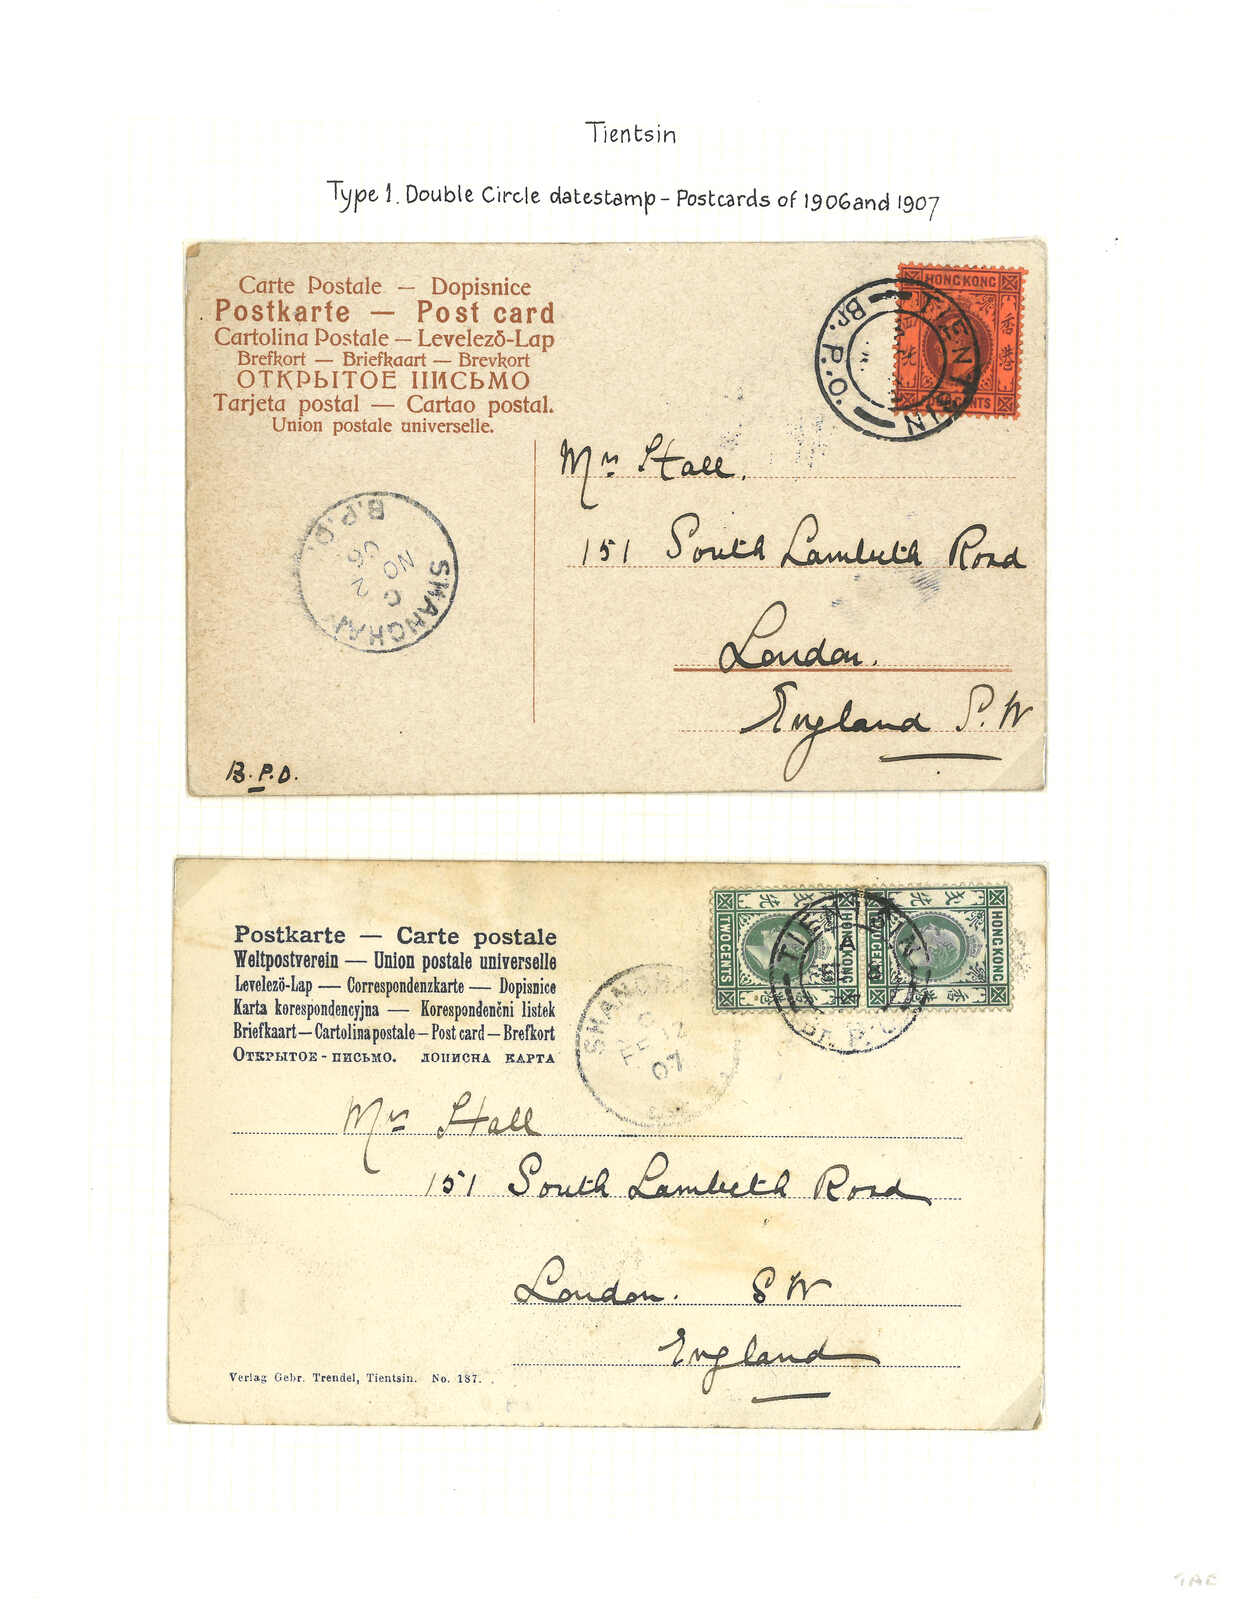 Tientsin
Type 1. Double Circle datestamp - Postcards of 1906 and 1907
Carte Postale — Dopisnice
Postkarte — Post card
Cartolina Postale — Levelező-Lap
Brefkort — Briefkaart — Brevkort
ОТКРЫТОЕ ПИСЬМО
Tarjeta postal — Cartao postal.
Union postale universelle.
HONG KONG
CENTS
TIENTSIN
Br. P.O.
Mrs Hall.
151 South Lambeth Road
London.
England S.W
SHANGHAI
B.P.O.
C
NO 2
06
B.P.O.
Postkarte — Carte postale
Weltpostverein — Union postale universelle
Levelező-Lap — Correspondenzkarte — Dopisnice
Karta korespondencyjna — Korespondenční listek
Briefkaart — Cartolina postale — Post card — Brefkort
Открытое-письмо. ДОПИСНА КАРТА
HONG KONG
TWO CENTS
HONG KONG
TWO CENTS
TIENTSIN
A
Br. P.O.
SHANGHAI
C
FE 12
07
Mrs Hall
151 South Lambeth Road
London. S W
England
Verlag Gebr. Trendel, Tientsin. No. 187.
TAE